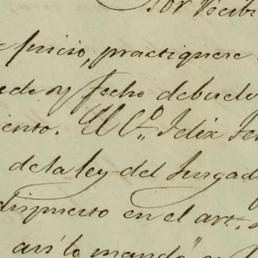 Por recibi
Juicio, practiquese
ede y fecho debuelv
iento. El C.º Felix Fer
de la ley del Juzgad
dispuesto en el art.
así lo mandó